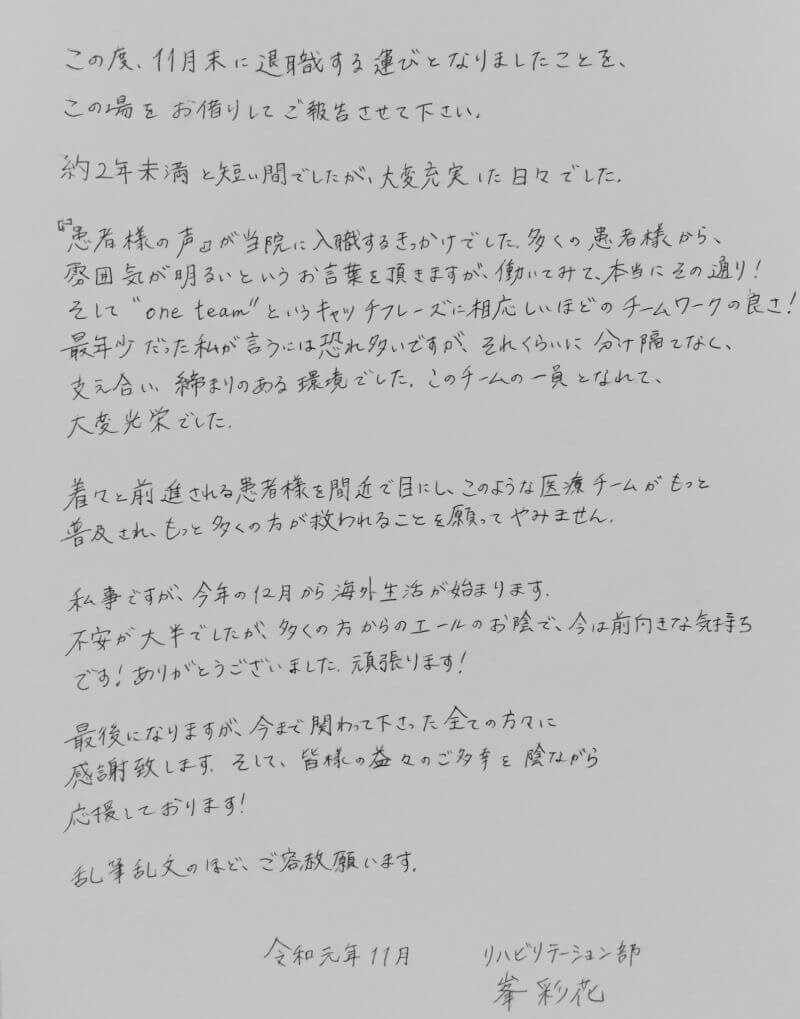 この度、11月末に退職する運びとなりましたことを、
この場をお借りしてご報告させて下さい。
約2年未満と短い間でしたが、大変充実した日々でした。
『患者様の声』が当院に入職するきっかけでした。多くの患者様から、
雰囲気が明るいというお言葉を頂きますが、働いてみて、本当にその通り!
そして"one team"というキャッチフレーズに相応しいほどのチームワークの良さ!
最年少だった私が言うには恐れ多いですが、それくらいに分け隔てなく、
支え合い、締まりのある環境でした。このチームの一員となれて、
大変光栄でした。
着々と前進される患者様を間近で目にし、このような医療チームがもっと
普及され、もっと多くの方が救われることを願ってやみません。
私事ですが、今年の12月から海外生活が始まります。
不安が大半でしたが、多くの方からのエールのお陰で、今は前向きな気持ち
です!ありがとうございました。頑張ります!
最後になりますが、今まで関わって下さった全ての方々に
感謝致します。そして、皆様の益々のご多幸を陰ながら
応援しております!
乱筆乱文のほど、ご容赦願います。
令和元年11月 リハビリテーション部
峯 彩花